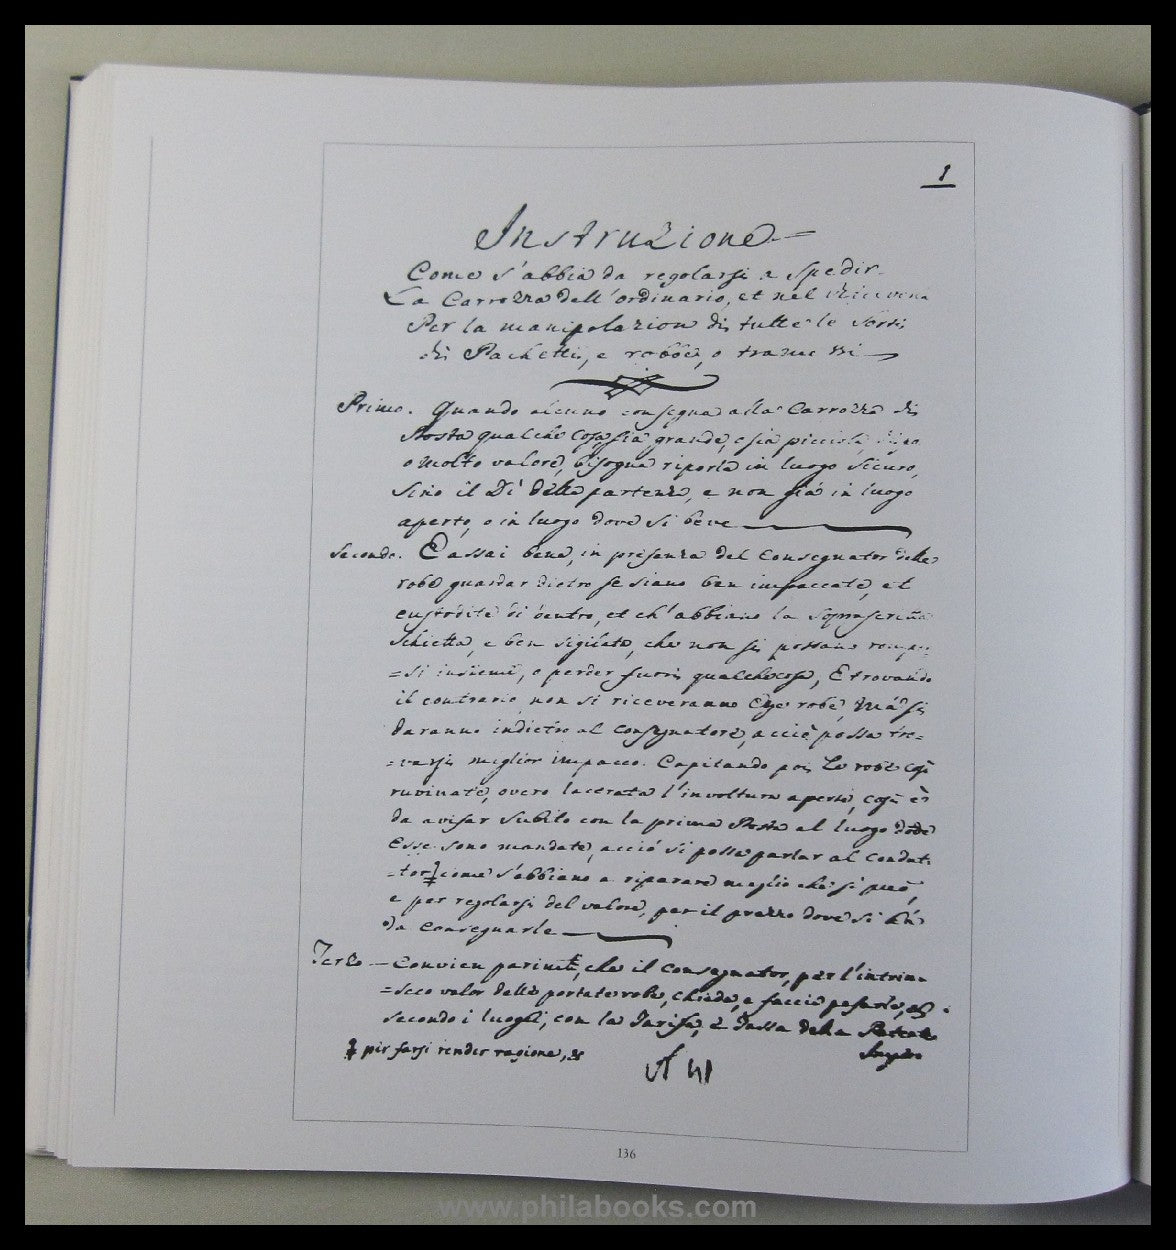 1
Instruzione
Come s'abbia da regolarsi a Spedir
La Carrozza dell'ordinario, et nel ricever
Per la manipolazion di tutte le Sorti
di Pachetti, e robbe, o
Primo. Quando alcuno consegna alla Carrozza di
Posta qualche cosa, sia grande, o sia picciola,
o molto valore, bisogna riporla in luogo sicuro,
sino il Di della partenza, e non già in luogo
aperto, o in luogo dove si beve
Secondo. È assai bene, in presenza del Consegnator delle
robe guardar dietro se siano ben impaccate, et
custodite di dentro, et ch'abbiano la soprascritta
Schietta, e ben sigilata, che non si possano romper
=si insieme, o perder fuori qualchecosa, E trovando
il contrario non si riceveranno robe, mà si
daranno indietro al consegnatore, acciò possa tro=
=varsi miglior impacco. Capitando poi le robe così
ruvinate, overo lacerata l'involtura aperto, così è
da avisar subito con la prima Posta al luogo dove
esse sono mandate, acciò si possa parlar al condut
=tor come s'abbiano a riparare meglio che si può,
e per regolarsi del valore, per il prezzo dove si
da consegnarle
Terzo. Convien parimente, che il consegnator, per l'intrin
=seco valor delle portate robe, chieda, e faccia pesarle,
secondo i luoghi, con la Tariffa, è Tassa della
per farsi render ragione, &
136
www.philabooks.com